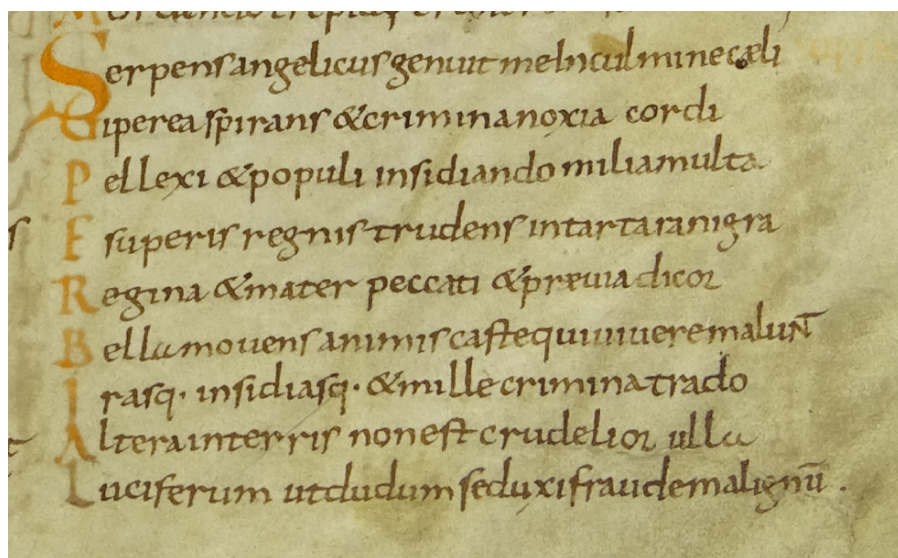 Serpens angelicus genuit me In culmine cæli
Uiperea spirans & crimina noxia cordi
Pellexi & populi insidiando milia multa
E superis regnis trudens in tartara nigra
Regina & mater peccati & præuia dicor
Bella mouens animis caste qui uiuere malunt
Irasq· insidiasq· & mille crimina trado
Altera in terris non est crudelior ulla
Luciferum ut dudum seduxi fraude malignū .